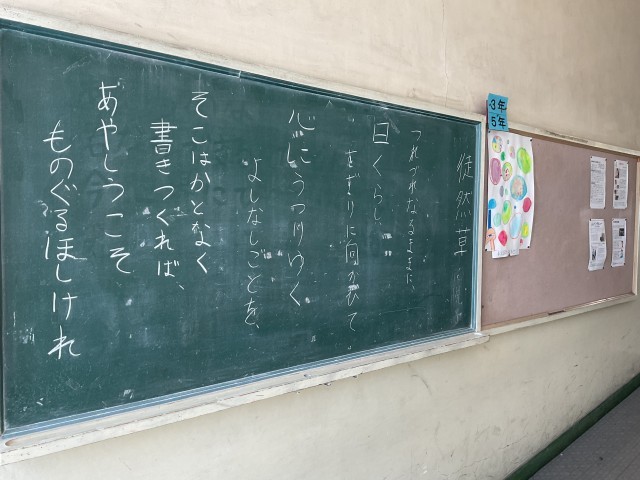 徒然草
つれづれなるままに、
日くらし、
すずりに向かひて
心にうつりゆく
よしなしごとを、
そこはかとなく
書きつくれば、
あやしうこそ
ものぐるほしけれ
3年
5年